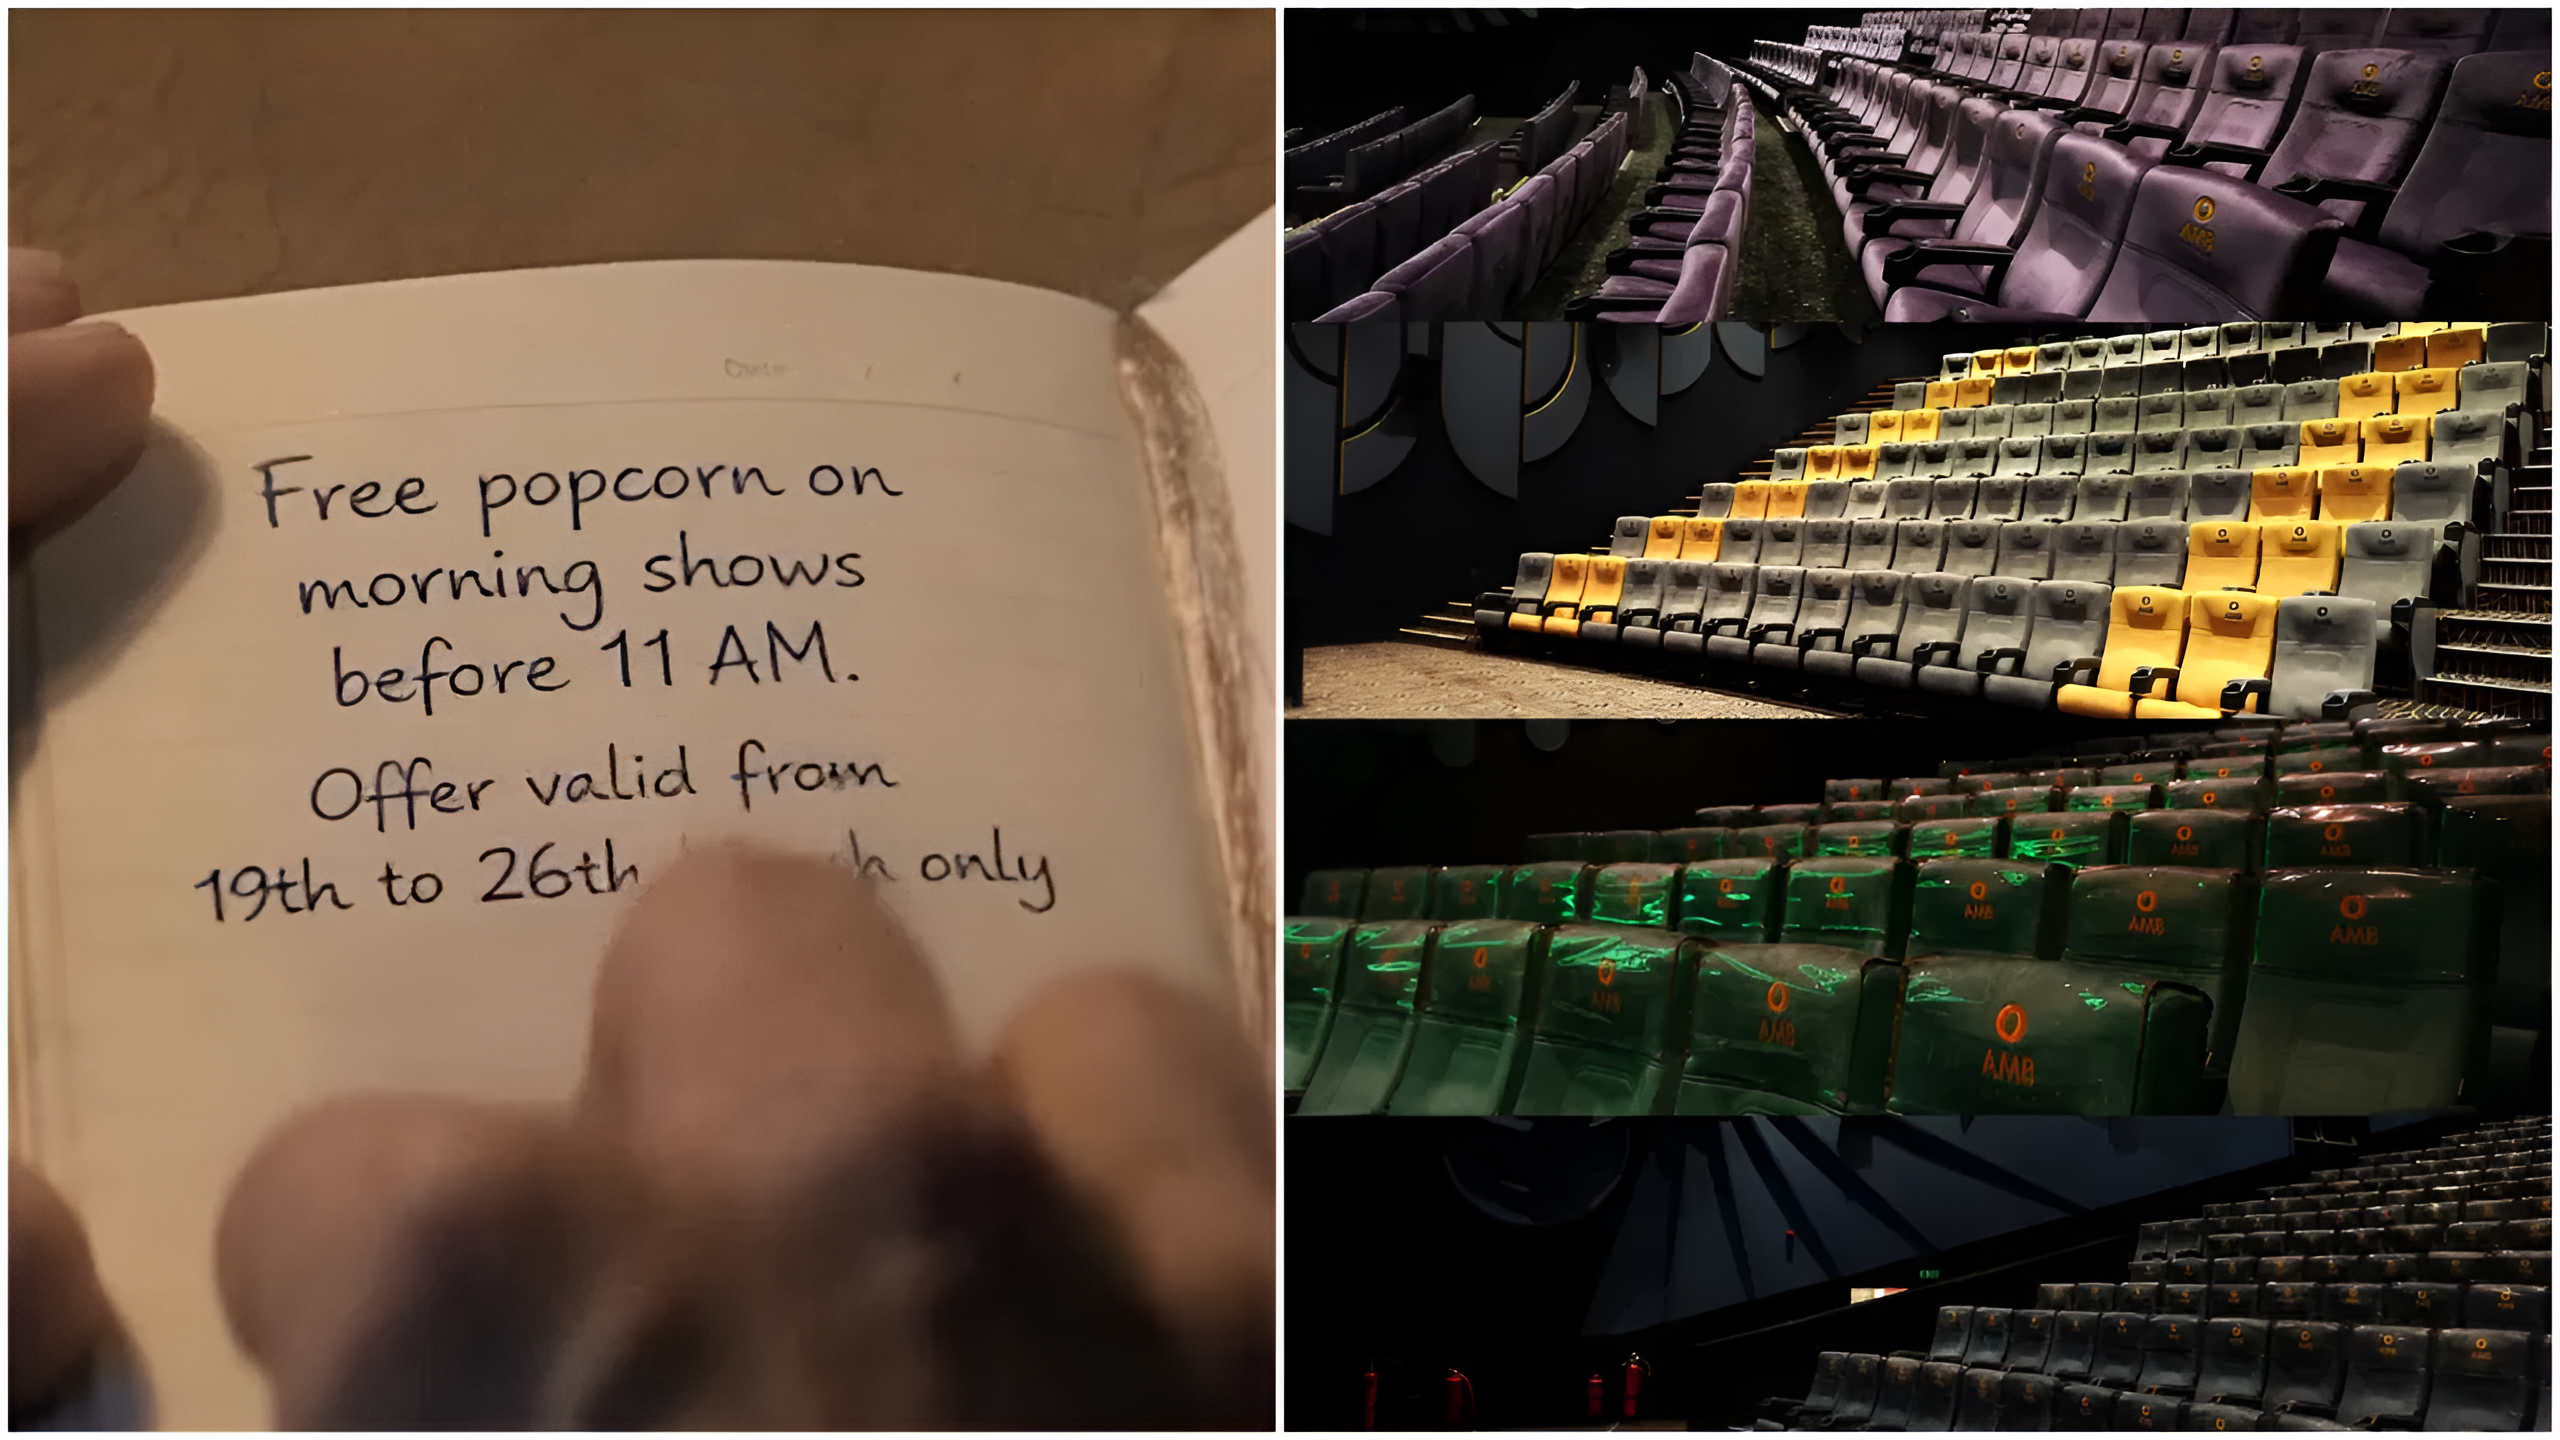 Free popcorn on
morning shows
before 11 AM.
Offer valid from
19th to 26th only
AMB
AMB
AMB
AMB
AMB
AMB